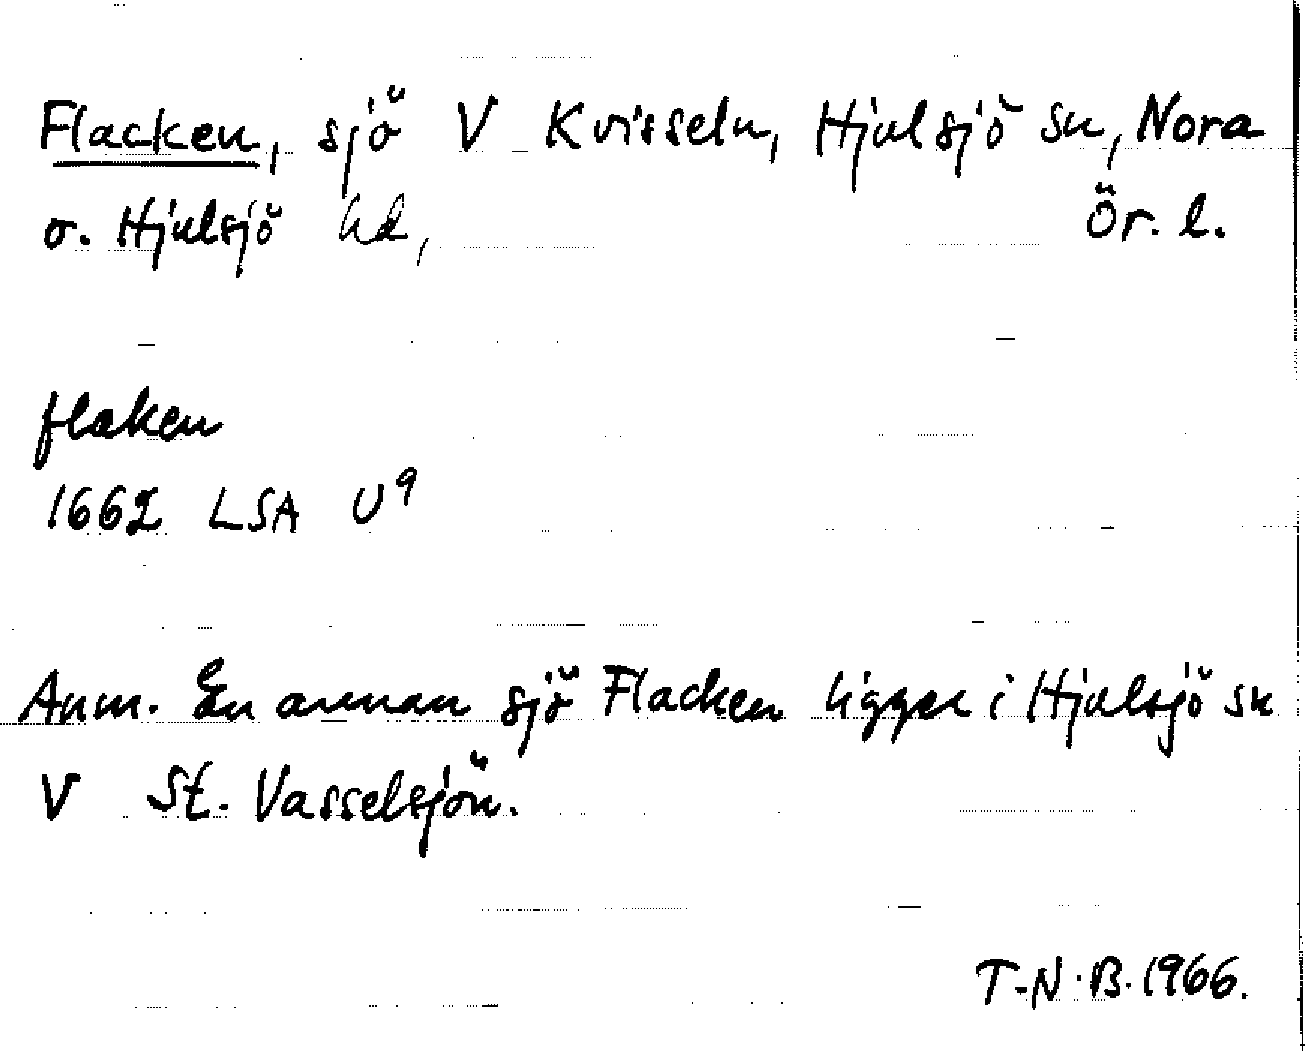 Flacken, sjö V Kvisseln, Hjulsjö sn, Nora
o. Hjulsjö hd, Ör. l.
flaken
1662 LSA U9
Anm. En annan sjö Flacken ligger i Hjulsjö sn
V St. Vasselsjön.
T-N.B. 1966.